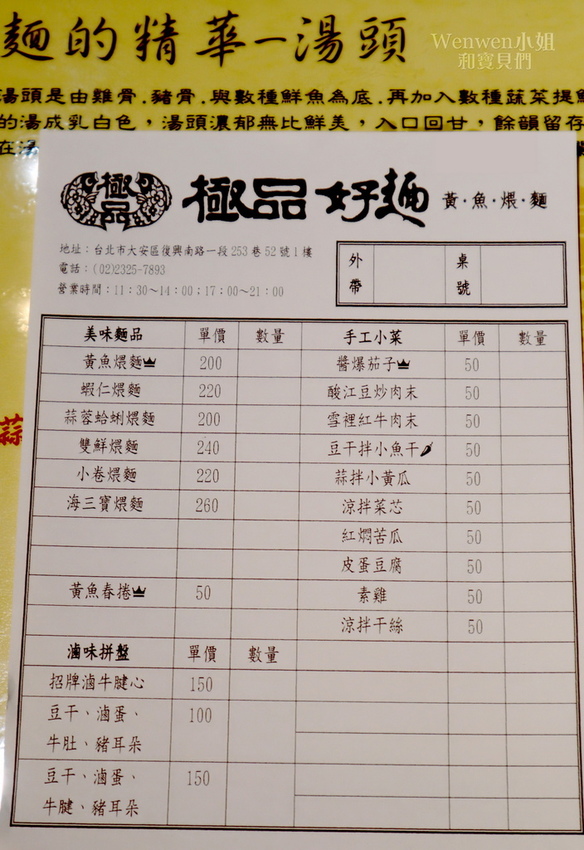 麵的精華—湯頭
Wenwen小姐
和寶貝們
湯頭是由雞骨.豬骨.與數種鮮魚為底.再加入數種蔬菜提
的湯成乳白色，湯頭濃郁無比鮮美，入口回甘，餘韻留存
在
蒜
極品
極品 好麵 黃·魚·煨·麵
地址：台北市大安區復興南路一段253巷52號1樓
電話：(02)2325-7893
營業時間：11：30～14：00；17：00～21：00
外帶 桌號
美味麵品 單價 數量 手工小菜 單價 數量
黃魚煨麵 200 醬爆茄子 50
蝦仁煨麵 220 酸江豆炒肉末 50
蒜蓉蛤蜊煨麵 200 雪裡紅牛肉末 50
雙鮮煨麵 240 豆干拌小魚干 50
小卷煨麵 220 蒜拌小黃瓜 50
海三寶煨麵 260 涼拌菜芯 50
紅燜苦瓜 50
皮蛋豆腐 50
黃魚春捲 50 素雞 50
涼拌干絲 50
滷味拼盤 單價 數量
招牌滷牛腱心 150
豆干、滷蛋、 100
牛肚、豬耳朵
豆干、滷蛋、 150
牛腱、豬耳朵